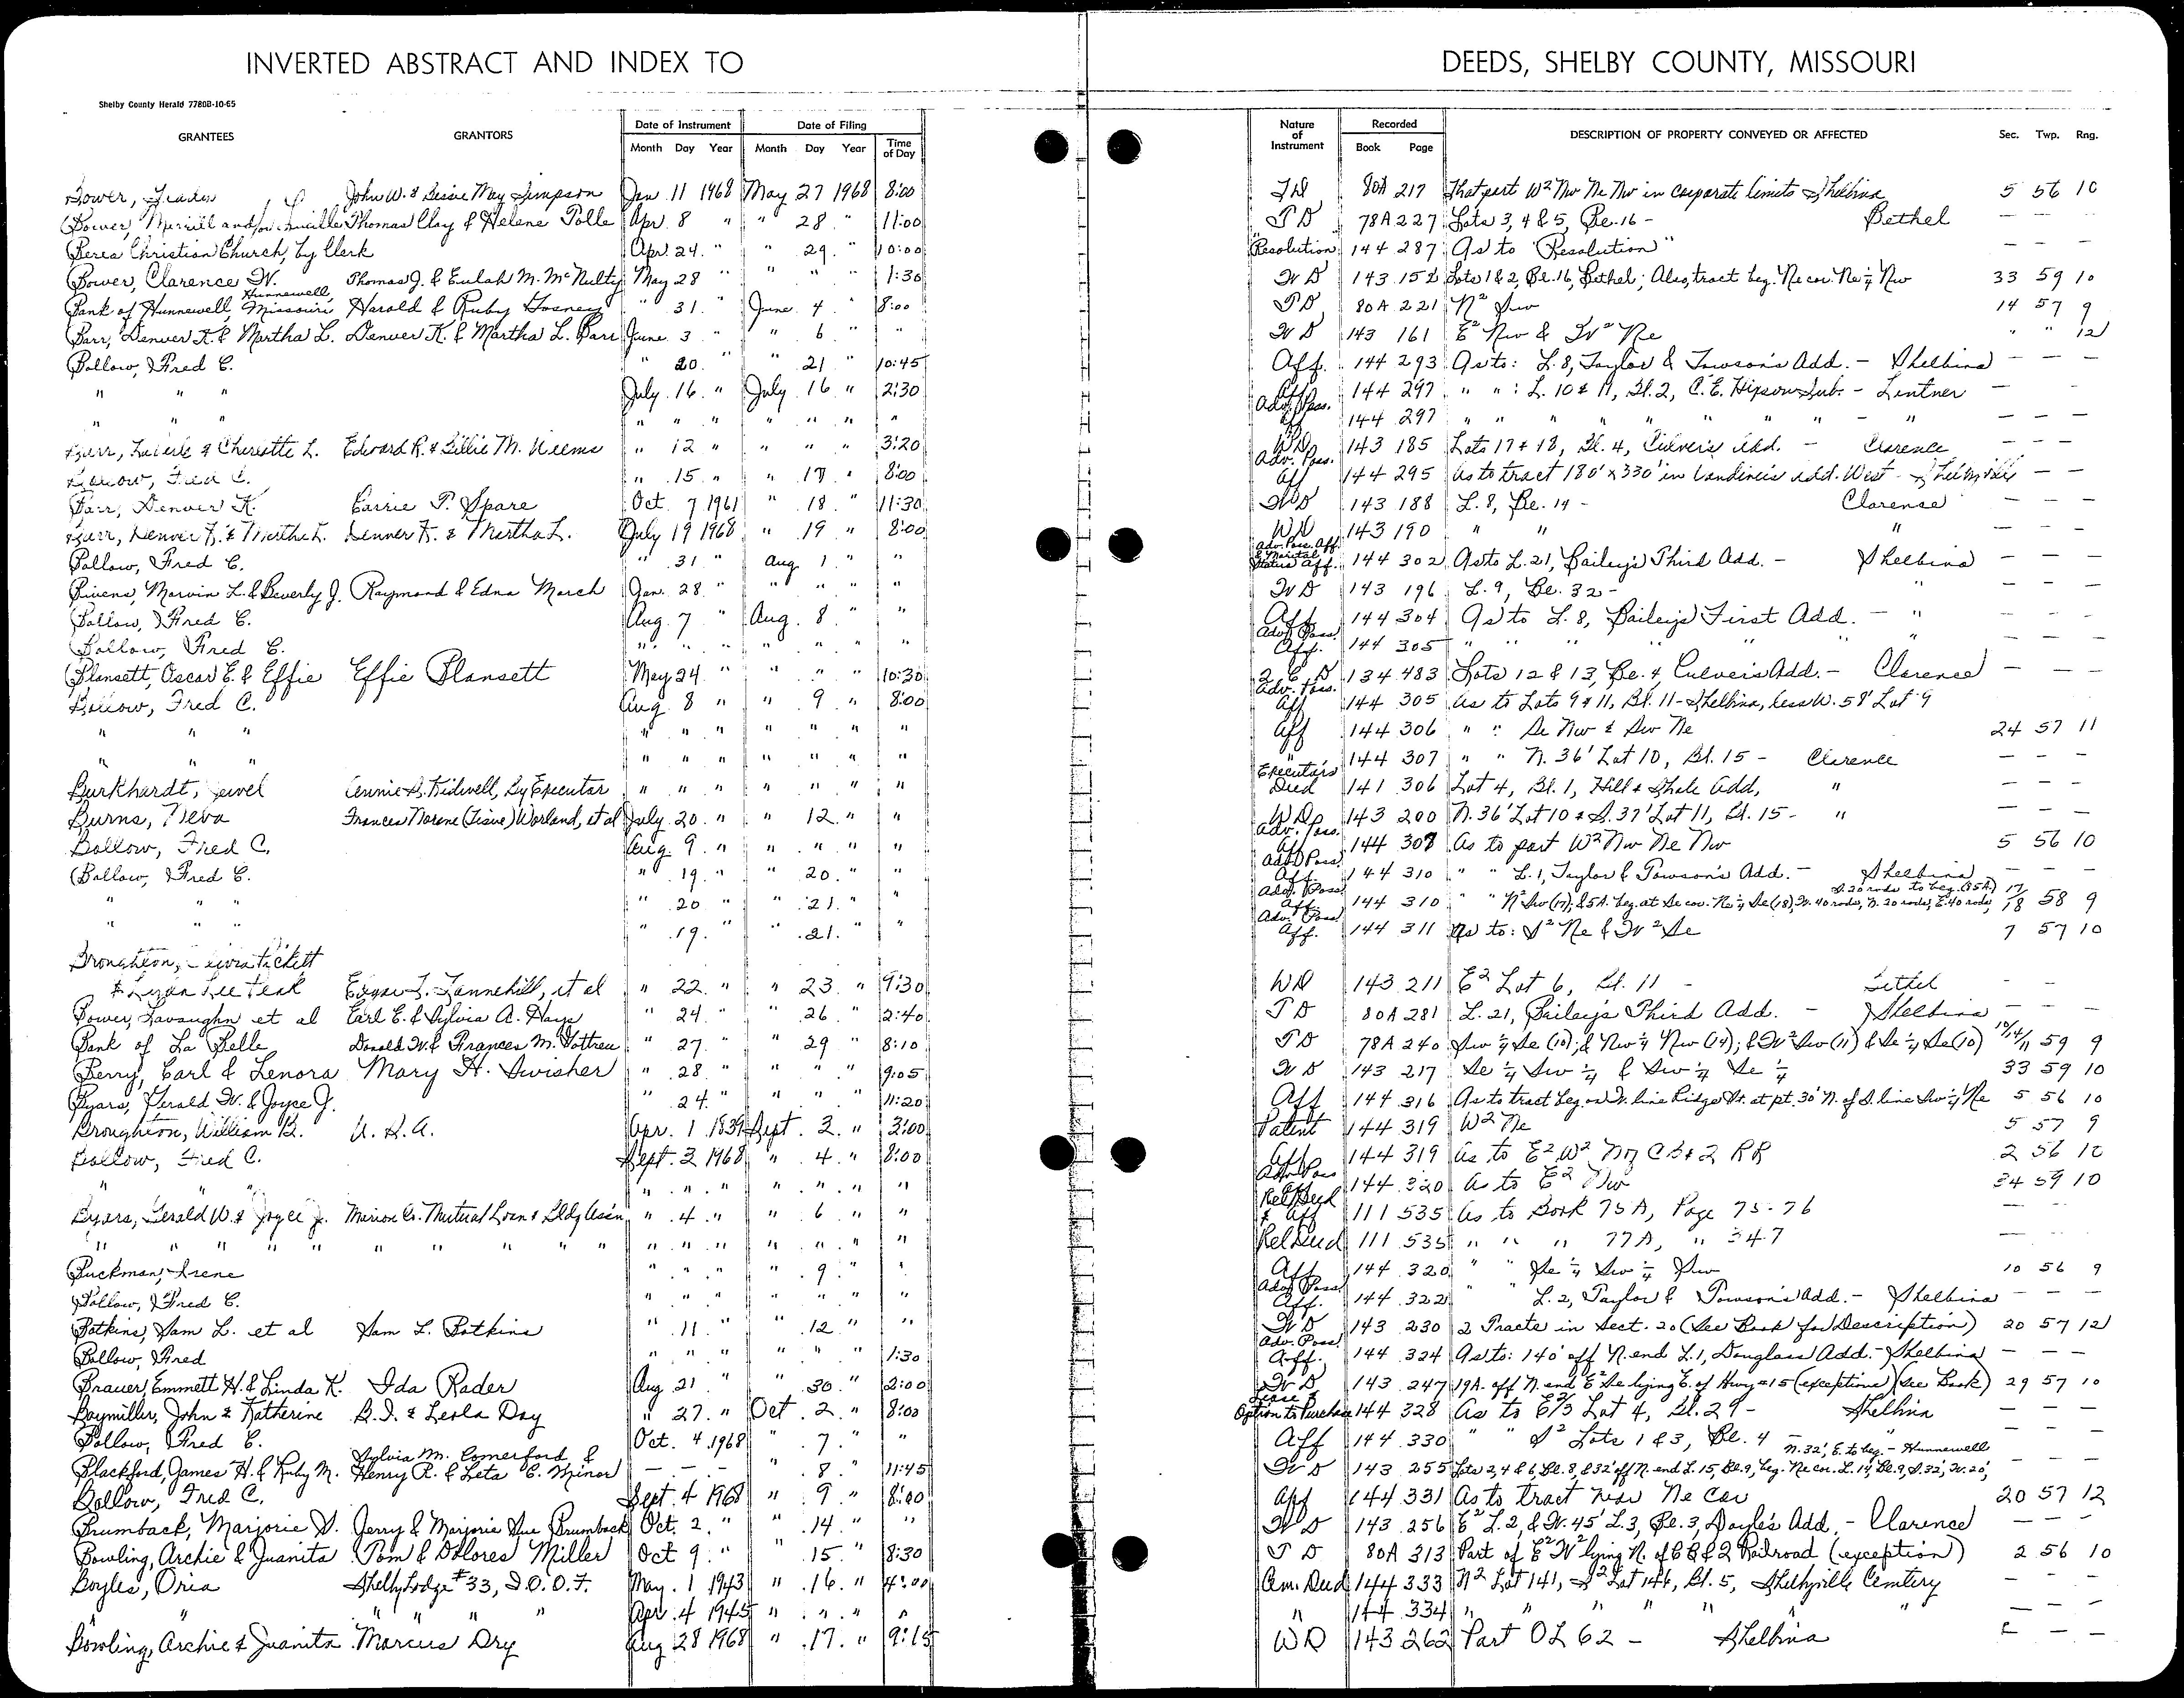 INVERTED ABSTRACT AND INDEX TO DEEDS, SHELBY COUNTY, MISSOURI
Shelby County Herald 7780B-10-65
GRANTEES GRANTORS Date of Instrument Date of Filing Nature of Instrument Recorded DESCRIPTION OF PROPERTY CONVEYED OR AFFECTED Sec. Twp. Rng.
Month Day Year Month Day Year Time of Day Book Page
Bower, John W. & Bessie May Simpson Jan 11 1968 May 27 1968 8:00 TD 80A 217 That part W² Nw Ne Nw in corporate limits Shelbina 5 56 10
Bower, Merrill and/or Lucille Thomas Clay & Helene Polle Apr. 8 " " 28 " 11:00 TD 78A 227 Lots 3, 4 & 5, Bl. 16 - Bethel — — —
Berea Christian Church, by Clerk Apr. 24 " " 29 " 10:00 Resolution 144 287 As to "Resolution" — — —
Bower, Clarence W. Thomas J. & Eulah M. McNulty May 28 " " " " 1:30 WD 143 158 Lots 1 & 2, Bl. 16, Bethel; Also, tract beg. Ne cor. Ne ¼ Nw 33 59 10
Bank of Hunnewell, Hunnewell, Missouri Harold & Ruby Gosney " 31 " June 4 " 8:00 TD 80A 221 N² Sw 14 57 9
Barr, Denver K. & Martha L. Denver K. & Martha L. Barr June 3 " " 6 " " WD 143 161 E² Nw & W² Ne " " 12
Bollow, Fred C. " 20 " " 21 " 10:45 Aff. 144 293 As to: L. 8, Taylor & Towson's Add. - Shelbina — — —
" " " July 16 " July 16 " 2:30 Aff 144 297 " " : L. 10 & 11, Bl. 2, C. E. Hipson Sub. - Lentner —
" " " " " " " " " " Adv. Poss. Aff 144 297 " " " " " " " — " — — —
Barr, & Charlotte L. Edward R. & Lillie M. Neems " 12 " " " " 3:20 WD 143 185 Lots 17 & 18, Bl. 4, Culver's Add. - Clarence — — —
Bollow, Fred C. " 15 " " 17 " 8:00 Adv. Poss. Aff 144 295 As to tract 180' x 330' in add. West - Shelbyville — — —
Barr, Denver K. Carrie P. Spare Oct. 7 1961 " 18 " 11:30 WD 143 188 L. 8, Bl. 14 - Clarence — — —
Barr, Denver K. & Martha L. Denver K. & Martha L. July 19 1968 " 19 " 8:00 WD 143 190 " " " — — —
Bollow, Fred C. " 31 " Aug 1 " " Adv. Poss. Aff & Marital Status Aff. 144 302 As to L. 21, Bailey's Third Add. - Shelbina — — —
Bivens, Marvin L. & Beverly J. Raymond & Edna March Jan. 28 " " " " " WD 143 196 L. 9, Bl. 32 - " — — —
Bollow, Fred C. Aug. 7 " Aug. 8 " " Aff 144 304 As to L. 8, Bailey's First Add. - " — — —
Bollow, Fred C. " " " " " " " Adv. Poss. Aff. 144 305 " " " " " " — — —
Blansett, Oscar E. & Effie Effie Blansett May 24 " " " " 10:30 134 483 Lots 12 & 13, Bl. 4, Culver's Add. - Clarence — — —
Bollow, Fred C. Aug. 8 " " 9 " 8:00 Adv. Poss. Aff 144 305 As to Lots 9 & 11, Bl. 11 - Shelbina, less W. 58' Lot 9
" " " " " " " " " " Aff 144 306 " " : Se Nw & Sw Ne 24 57 11
" " " " " " " " " " " 144 307 " " N. 36' Lot 10, Bl. 15 - Clarence — — —
Burkhardt, Jewel Annie B. Kidwell, By Executor " " " " " " " Executor's Deed 141 306 Lot 4, Bl. 1, Hill & Shale Add, " — — —
Burns, Neva Frances Norene (Tisue) Worland, et al July 20 " " 12 " " WD 143 200 N. 36' Lot 10 & S. 37' Lot 11, Bl. 15 - " — — —
Bollow, Fred C. Aug. 9 " " " " " Adv. Poss. Aff 144 308 As to part W² Nw Ne Nw 5 56 10
Bollow, Fred C. " 19 " " 20 " " Adv. Poss. Aff. 144 310 " " L. 1, Taylor & Towson's Add. - Shelbina — — —
" " " " 20 " " 21 " " Adv. Poss. Aff. 144 310 " " N² Sw (17); & 5A. beg. at Se cor. Ne ¼ Se (18), W. 40 rods, N. 20 rods, E. 40 rods, S. 20 rods to beg. (5A) 17/18 58 9
" " " " 19 " " 21 " " Adv. Poss. Aff. 144 311 As to: S² Ne & W² Se 7 57 10
Broughton, Tickett
& Lee Teal Tannehill, et al " 22 " " 23 " 9:30 WD 143 211 E² Lot 6, Bl. 11 - Bethel — —
Bower, Lavaughn et al Earl E. & Sylvia A. Hays " 24 " " 26 " 2:40 TD 80A 281 L. 21, Bailey's Third Add. - Shelbina — — —
Bank of La Belle Donald W. & Frances M. Gottreu " 27 " " 29 " 8:10 TD 78A 240 Sw ¼ Se (10); & Nw ¼ Nw (14); & W² Sw (11) & Se ¼ Se (10) 10/14/11 59 9
Berry, Carl & Lenora Mary H. Swisher " 28 " " " " 9:05 WD 143 217 Se ¼ Sw ¼ & Sw ¼ Se ¼ 33 59 10
Byars, Gerald W. & Joyce J. " 24 " " " " 11:20 Aff 144 316 As to tract beg. on W. line Ridge St. at pt. 30' N. of S. line Sw ¼ Ne 5 56 10
Broughton, William B. U. S. A. Apr. 1 1839 Sept. 3 " 3:00 Patent 144 319 W² Ne 5 57 9
Bollow, Fred C. Sept. 3 1968 " 4 " 8:00 Aff 144 319 As to E² W² N of C B & Q RR 2 56 10
" " " " " " " " Adv. Poss Aff 144 320 As to E² Nw 34 59 10
Byars, Gerald W. & Joyce J. Marion Co. Mutual Loan & Bldg Ass'n " 4 " " 6 " " Rel Deed & Aff 111 535 As to Book 75A, Page 75-76
" " " " " " " " " " " " " " " " " Rel Deed 111 535 " " " 77A, " 347 —
Buckman, Irene " " " " 9 " " Aff 144 320 " " Se ¼ Sw ¼ Sw 10 56 9
Bollow, Fred C. " " " " " " " Adv. Poss. Aff. 144 322 " " L. 2, Taylor & Towson's Add. - Shelbina — — —
Botkins, Sam L. et al Sam L. Botkins " 11 " " 12 " " WD 143 230 2 Tracts in Sect. 20 (See Book for Description) 20 57 12
Bollow, Fred " " " " " " 1:30 Adv. Poss. Aff. 144 324 As to: 140' off N. end L. 1, Douglass Add. - Shelbina — — —
Brauer, Emmett H. & Linda K. Ida Rader Aug 21 " " 30 " 2:00 WD 143 247 19A. off N. end E² Se lying E. of Hwy #15 (exceptions) (See Book) 29 57 10
Baymiller, John & Katherine B. I. & Leola Day " 27 " Oct. 2 " 8:00 Lease & Option to Purchase 144 328 As to E⅔ Lot 4, Bl. 29 - Shelbina — — —
Bollow, Fred C. Oct. 4 1968 " 7 " " Aff 144 330 " " S² Lots 1 & 3, Bl. 4 - " — — —
Blackford, James H. & Ruby M. Sylvia M. Comerford & Henry R. & Leta C. Minor — — — " 8 " 11:45 WD 143 255 Lots 2, 4 & 6, Bl. 8, & 32' off N. end L. 15, Bl. 9, beg. Ne cor. L. 14, Bl. 9, S. 32', W. 20', N. 32', E. to beg. - Hunnewell
Bollow, Fred C. Sept. 4 1968 " 9 " 8:00 Aff 144 331 As to tract near Ne Cor 20 57 12
Brumback, Marjorie S. Jerry & Marjorie Sue Brumback Oct. 2 " " 14 " " WD 143 256 E² L. 2, & W. 45' L. 3, Bl. 3, Doyle's Add. - Clarence — — —
Bowling, Archie & Juanita Tom & Dolores Miller Oct 9 " " 15 " 8:30 TD 80A 313 Part of E² W² lying N. of C B & Q Railroad (exception) 2 56 10
Boyles, Oria Shelby Lodge #33, I.O.O.F. May 1 1943 " 16 " 4:00 Cem. Deed 144 333 N² Lot 141, S² Lot 146, Bl. 5, Shelbyville Cemtery — — —
" " " " " " Apr. 4 1945 " " " " " 144 334 " " " " " " — — —
Bowling, Archie & Juanita Marcus Dry Aug 28 1968 " 17 " 9:15 WD 143 262 Part OL 62 - Shelbina — —